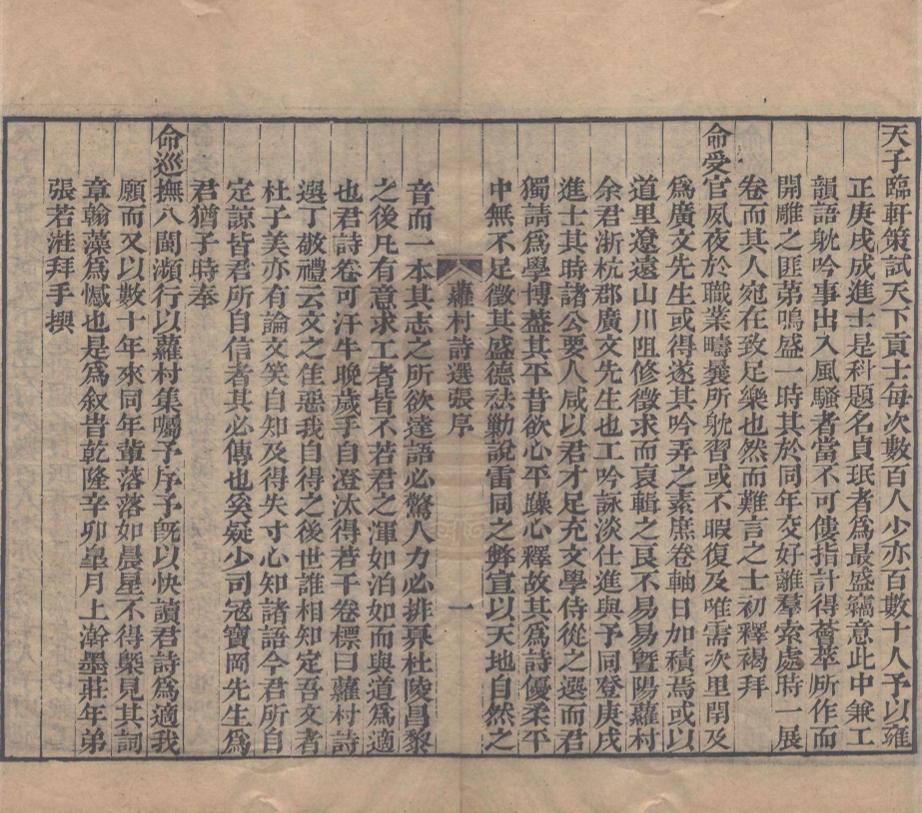 天子臨軒策試天下貢士每次數百人少亦百數十人予以雍
正庚戌成進士是科題名貞珉者為最盛竊意此中兼工
韻語躭吟事出入風騷者當不可僂指計得薈萃所作而
開雕之匪第鳴盛一時其於同年交好離羣索處時一展
卷而其人宛在致足樂也然而難言之士初釋褐拜
命受官夙夜於職業疇曩所躭習或不暇復及唯需次里閈及
為廣文先生或得遂其吟弄之素庶卷軸日加積焉或以
道里遼遠山川阻修徵求而裒輯之良不易易曁陽蘿村
余君浙杭郡廣文先生也工吟詠淡仕進與予同登庚戌
進士其時諸公要人咸以君才足充文學侍從之選而君
獨請為學博葢其平昔欲心平躁心釋故其為詩優柔平
中無不足徵其盛德袪勦說雷同之弊宣以天地自然之
蘿村詩選張序
一
音而一本其志之所欲達語必驚人力必排奡杜陵昌黎
之後凡有意求工者皆不若君之渾如泊如而與道為適
也君詩卷可汗牛晚歲手自澄汰得若干卷標曰蘿村詩
選丁敬禮云文之佳惡我自得之後世誰相知定吾文者
杜子美亦有論文笑自知及得失寸心知諸語今君所自
定諒皆君所自信者其必傳也奚疑少司冦寶岡先生為
君猶子時奉
命巡撫八閩瀕行以蘿村集囑予序予旣以快讀君詩為適我
願而又以數十年來同年輩落落如晨星不得槩見其詞
章翰藻為憾也是為叙旹乾隆辛卯皐月上澣墨莊年弟
張若溎拜手撰